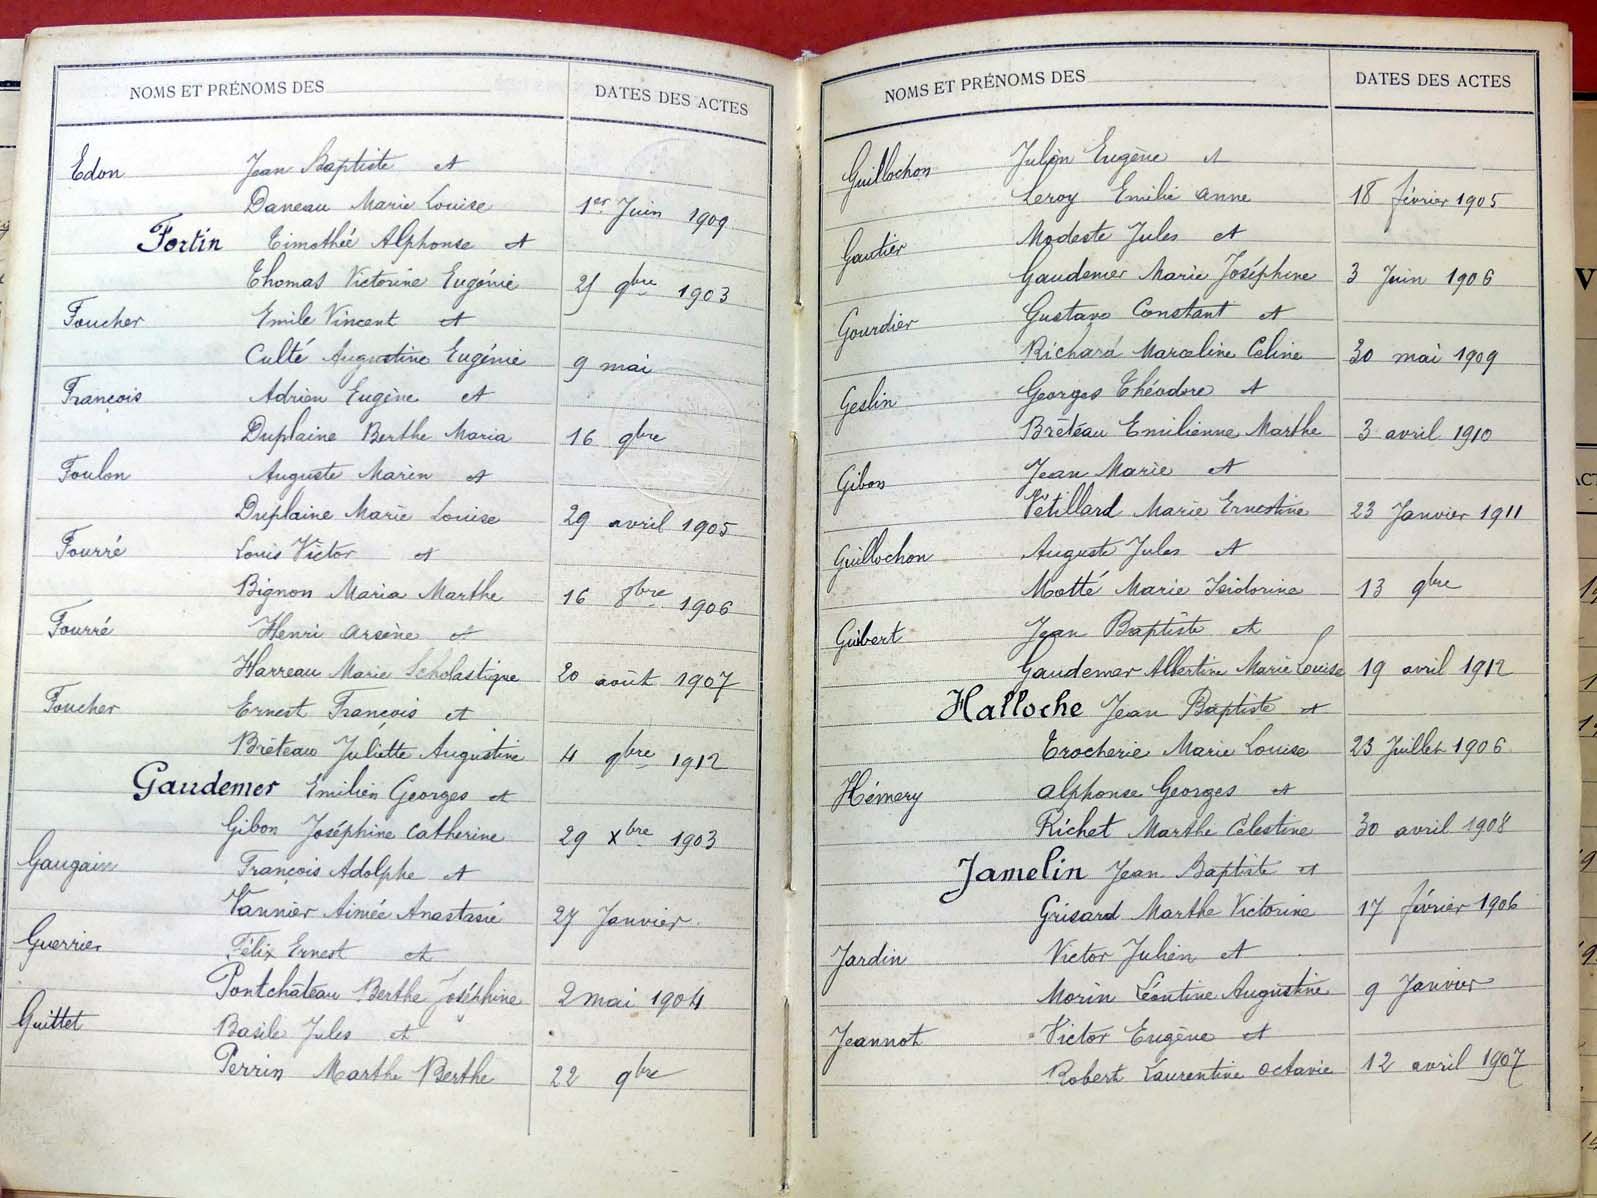 NOMS ET PRÉNOMS DES
DATES DES ACTES
Edon Jean Baptiste et
Daneau Marie Louise 1er Juin 1909
Fortin Timothée Alphonse et
Thomas Victorine Eugénie 21 9bre 1903
Foucher Emile Vincent et
Culté Augustine Eugénie 9 mai
François Adrien Eugène et
Duplaine Berthe Maria 16 9bre
Foulon Auguste Marin et
Duplaine Marie Louise 29 avril 1905
Fourré Louis Victor et
Bignon Maria Marthe 16 8bre 1906
Fourré Henri Arsène et
Harreau Marie Scholastique 20 août 1907
Foucher Ernest François et
Bréteau Juliette Augustine 4 9bre 1912
Gaudemer Emilien Georges et
Gibon Joséphine Catherine 29 Xbre 1903
Gaugain François Adolphe et
Vannier Aimée Anastasie 27 Janvier
Guerrier Félix Ernest et
Pontchâteau Berthe Joséphine 2 mai 1904
Guittet Basile Jules et
Perrin Marthe Berthe 22 9bre
NOMS ET PRÉNOMS DES
DATES DES ACTES
Guillochon Julien Eugène et
Leroy Emilie Anne 18 février 1905
Gautier Modeste Jules et
Gaudemer Marie Joséphine 3 Juin 1906
Gourdier Gustave Constant et
Richard Marceline Celine 30 mai 1909
Geslin Georges Théodore et
Bréteau Emilienne Marthe 3 avril 1910
Gibon Jean Marie et
Vétillard Marie Ernestine 23 Janvier 1911
Guillochon Auguste Jules et
Motté Marie Isidorine 13 9bre
Guibert Jean Baptiste et
Gaudemer Albertine Marie Louise 19 avril 1912
Halloche Jean Baptiste et
Trocherie Marie Louise 23 Juillet 1906
Hémery Alphonse Georges et
Richet Marthe Célestine 30 avril 1908
Jamelin Jean Baptiste et
Grisard Marthe Victorine 17 février 1906
Jardin Victor Julien et
Morin Léontine Augustine 9 Janvier
Jeannot Victor Eugène et
Robert Laurentine Octavie 12 avril 1907